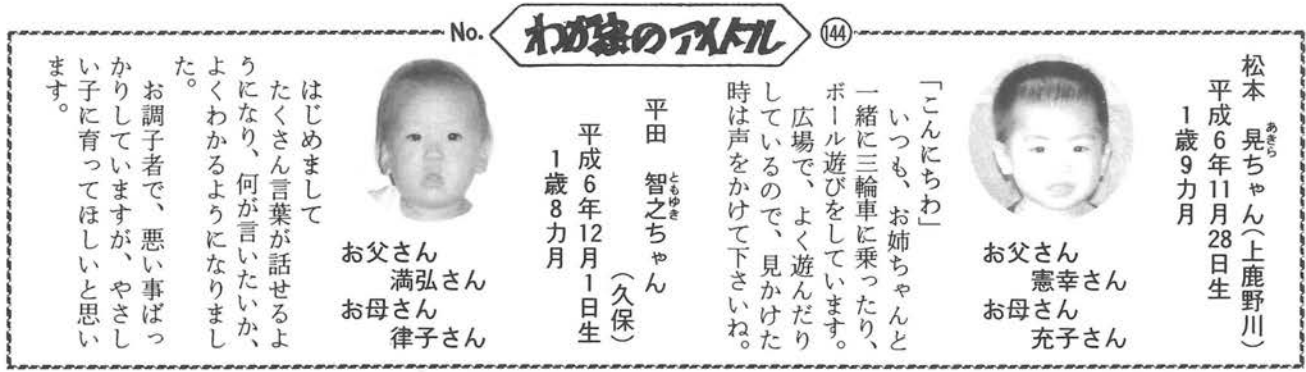 No.
わが家のアイドル
144
松本　晃ちゃん（上鹿野川）
あきら
平成6年11月28日生
1歳9カ月
お父さん
憲幸さん
お母さん
充子さん
「こんにちわ」
いつも、お姉ちゃんと
一緒に三輪車に乗ったり、
ボール遊びをしています。
広場で、よく遊んだり
しているので、見かけた
時は声をかけて下さいね。
平田　智之ちゃん
ともゆき
（久保）
平成6年12月1日生
1歳8カ月
お父さん
満弘さん
お母さん
律子さん
はじめまして
たくさん言葉が話せるよ
うになり、何が言いたいか、
よくわかるようになりまし
た。
お調子者で、悪い事ばっ
かりしていますが、やさし
い子に育ってほしいと思い
ます。